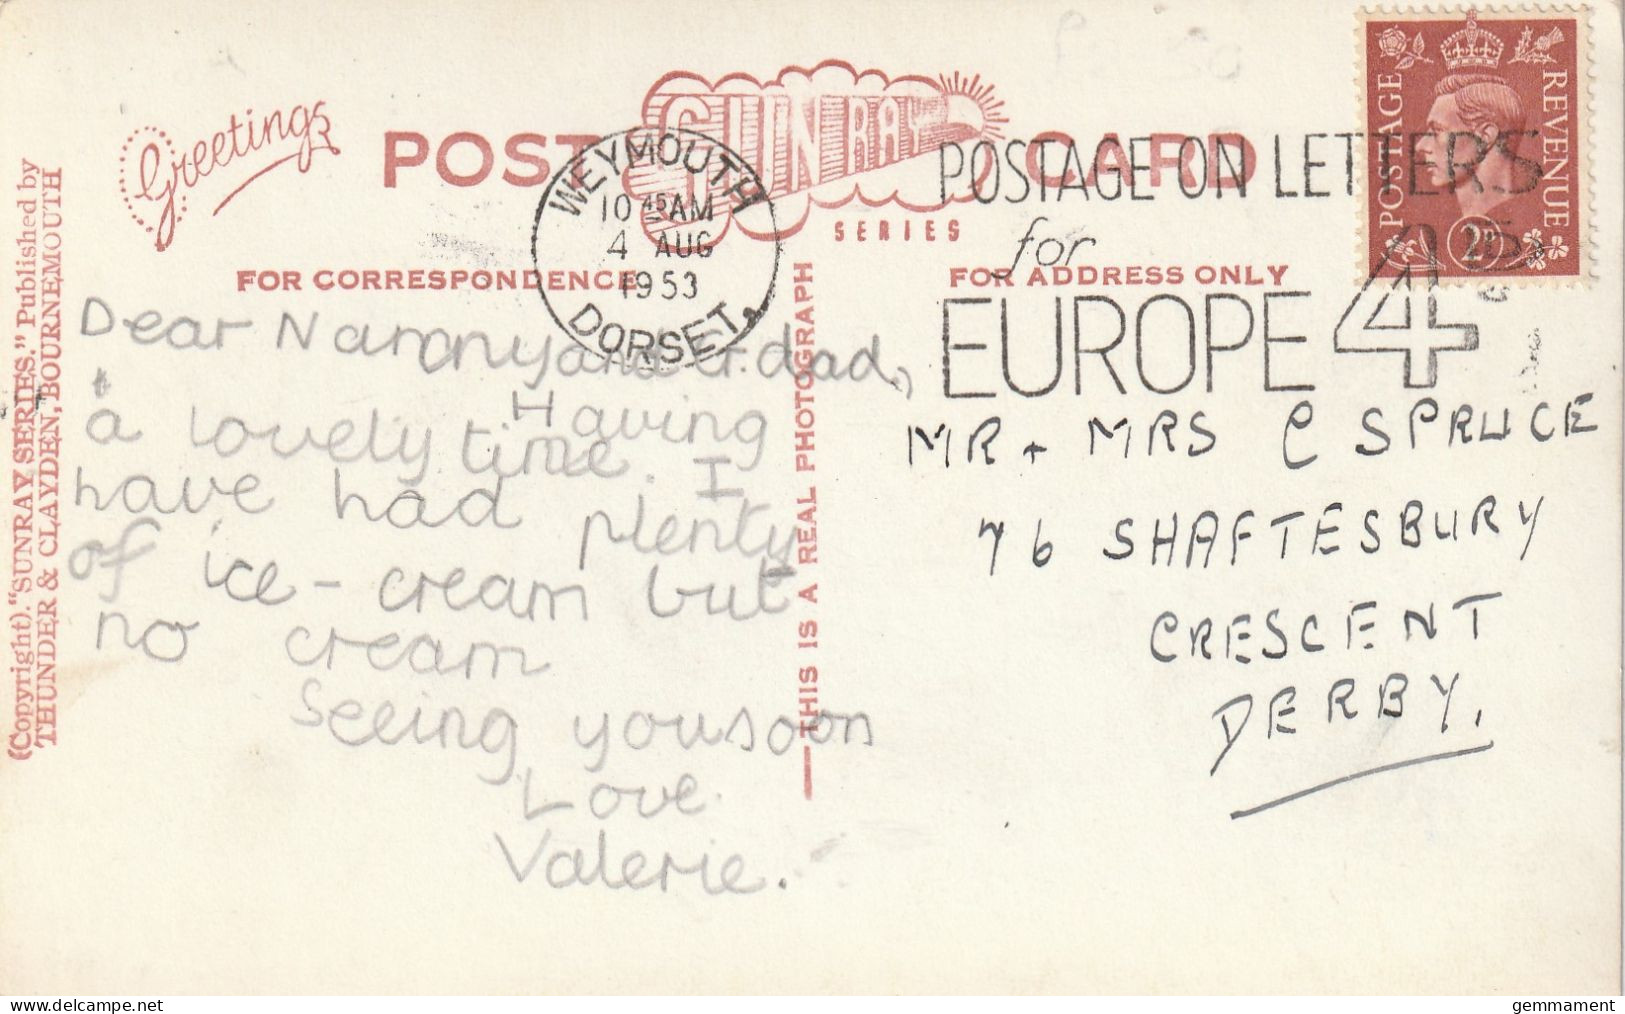 Greetings
POST CARD
SUNRAY
SERIES
WEYMOUTH
10 45 AM
4 AUG
1953
DORSET.
POSTAGE ON LETTERS
for
EUROPE 4
POSTAGE
REVENUE
FOR CORRESPONDENCE
FOR ADDRESS ONLY
(Copyright). "SUNRAY SERIES." Published by
THUNDER & CLAYDEN, BOURNEMOUTH
THIS IS A REAL PHOTOGRAPH
Dear Nanny and Gr.dad,
Having
a lovely time. I
have had plenty
of ice-cream but
no cream
Seeing you soon
Love
Valerie.
MR + MRS C SPRUCE
76 SHAFTESBURY
CRESCENT
DERBY.
gemmament